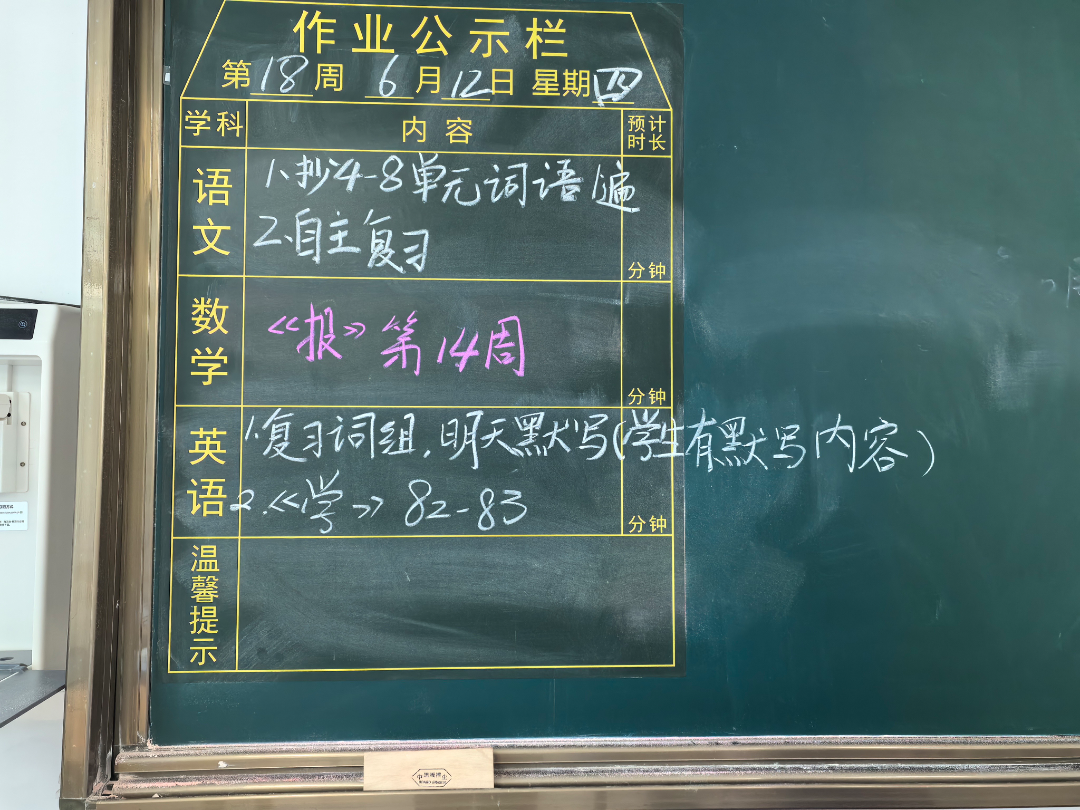 作业公示栏
第18周 6月12日 星期四
学科 内容 预计时长
语文 1、抄4-8单元词语1遍
2、自主复习
分钟
数学 《报》第14周
分钟
英语 1.复习词组,明天默写(学生有默写内容)
2.《学》82-83
分钟
温馨提示